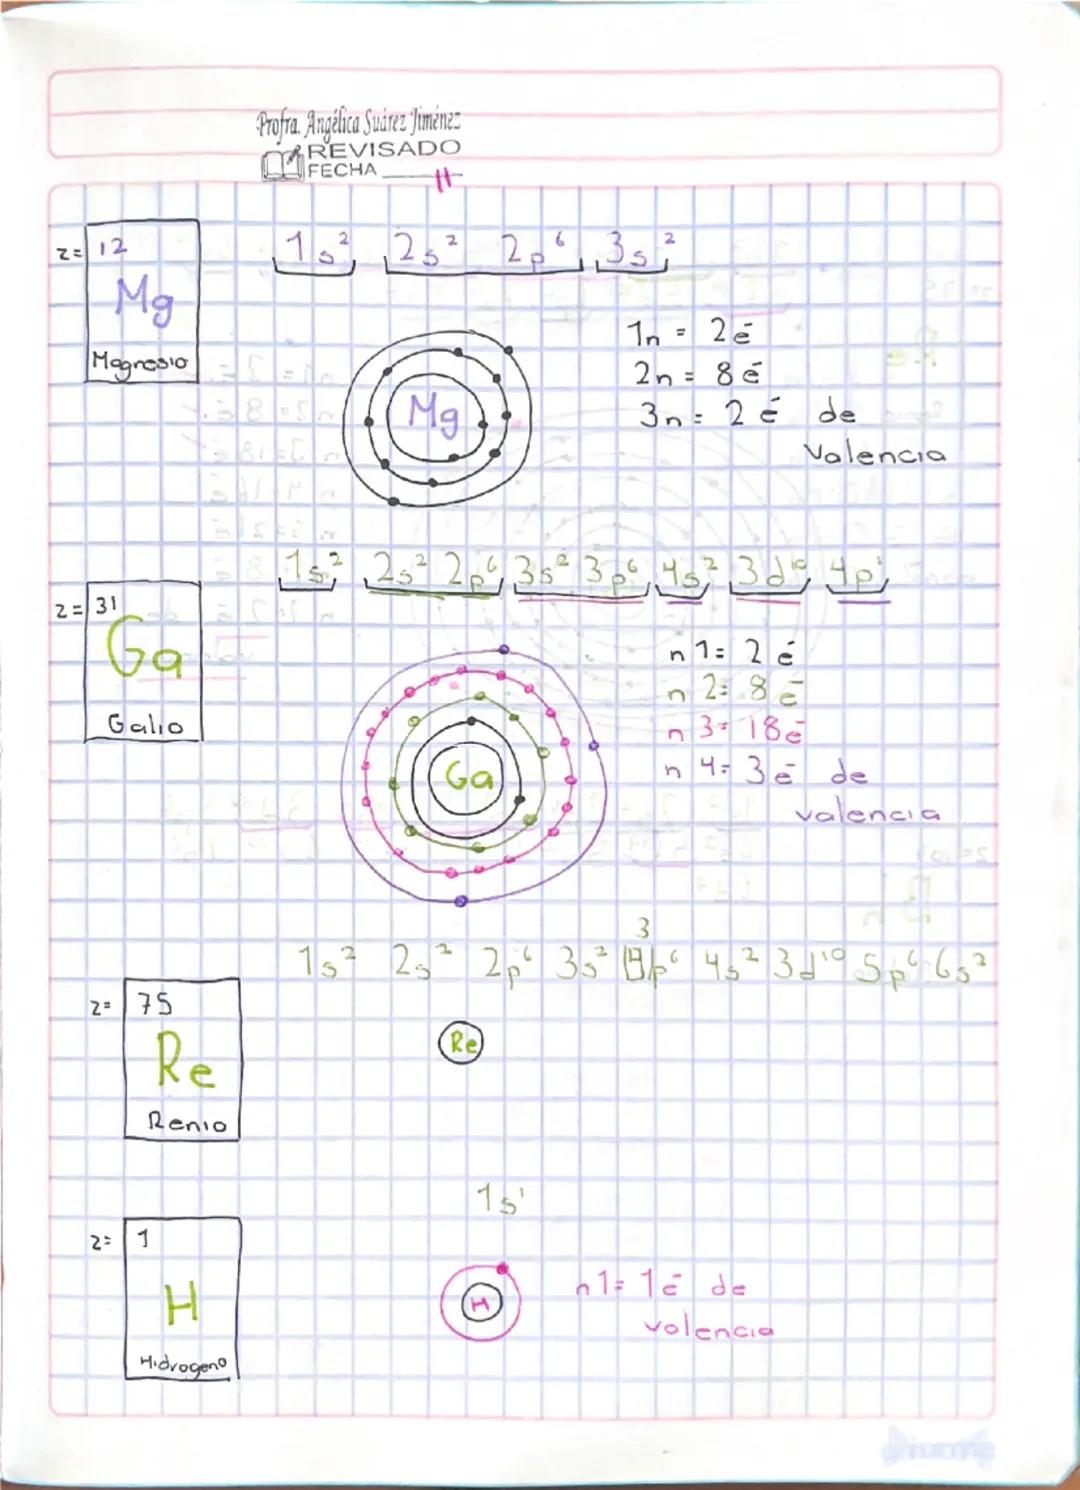 Profra. Angélica Suárez Jiménez
REVISADO
FECHA
z= 12
Mg
Magnesio
1s² 2s² 2p⁶ 3s²
Mg
1n = 2é
2n = 8é
3n = 2é de
valencia
z= 31
Ga
Galio
1s² 2s² 2p⁶ 3s² 3p⁶ 4s² 3d¹⁰ 4p¹
Ga
n1= 2é
n2= 8é
n3= 18é
n4= 3é de
valencia
3
1s² 2s² 2p⁶ 3s² p⁶ 4s² 3d¹⁰ 5p⁶ 6s²
z= 75
Re
Renio
Re
1s¹
z= 1
H
Hidrogeno
H
n1= 1é de
valencia